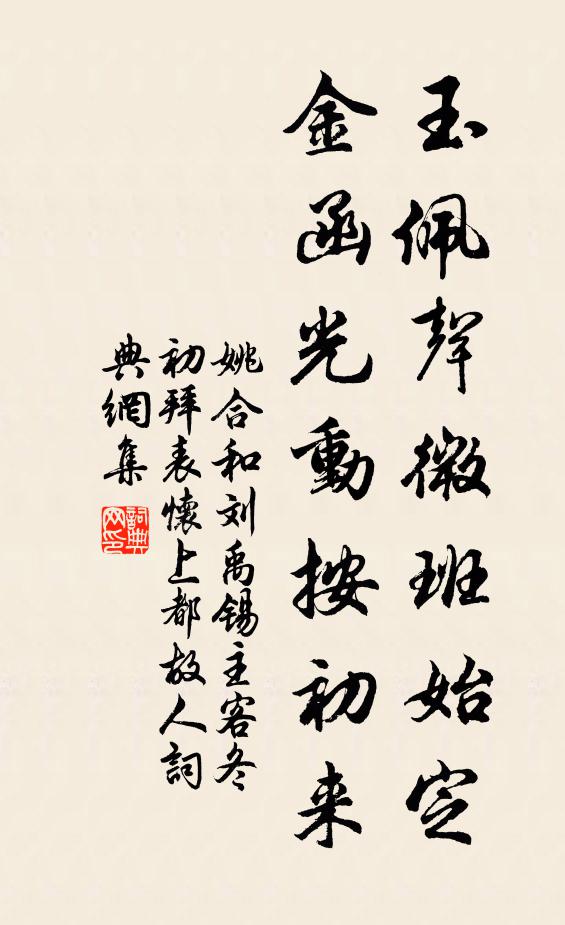 玉佩聲微班始定
金函光動按初来
姚合和刘禹锡主客冬
初拜表懷上都故人詞
典網集
詞典
网印